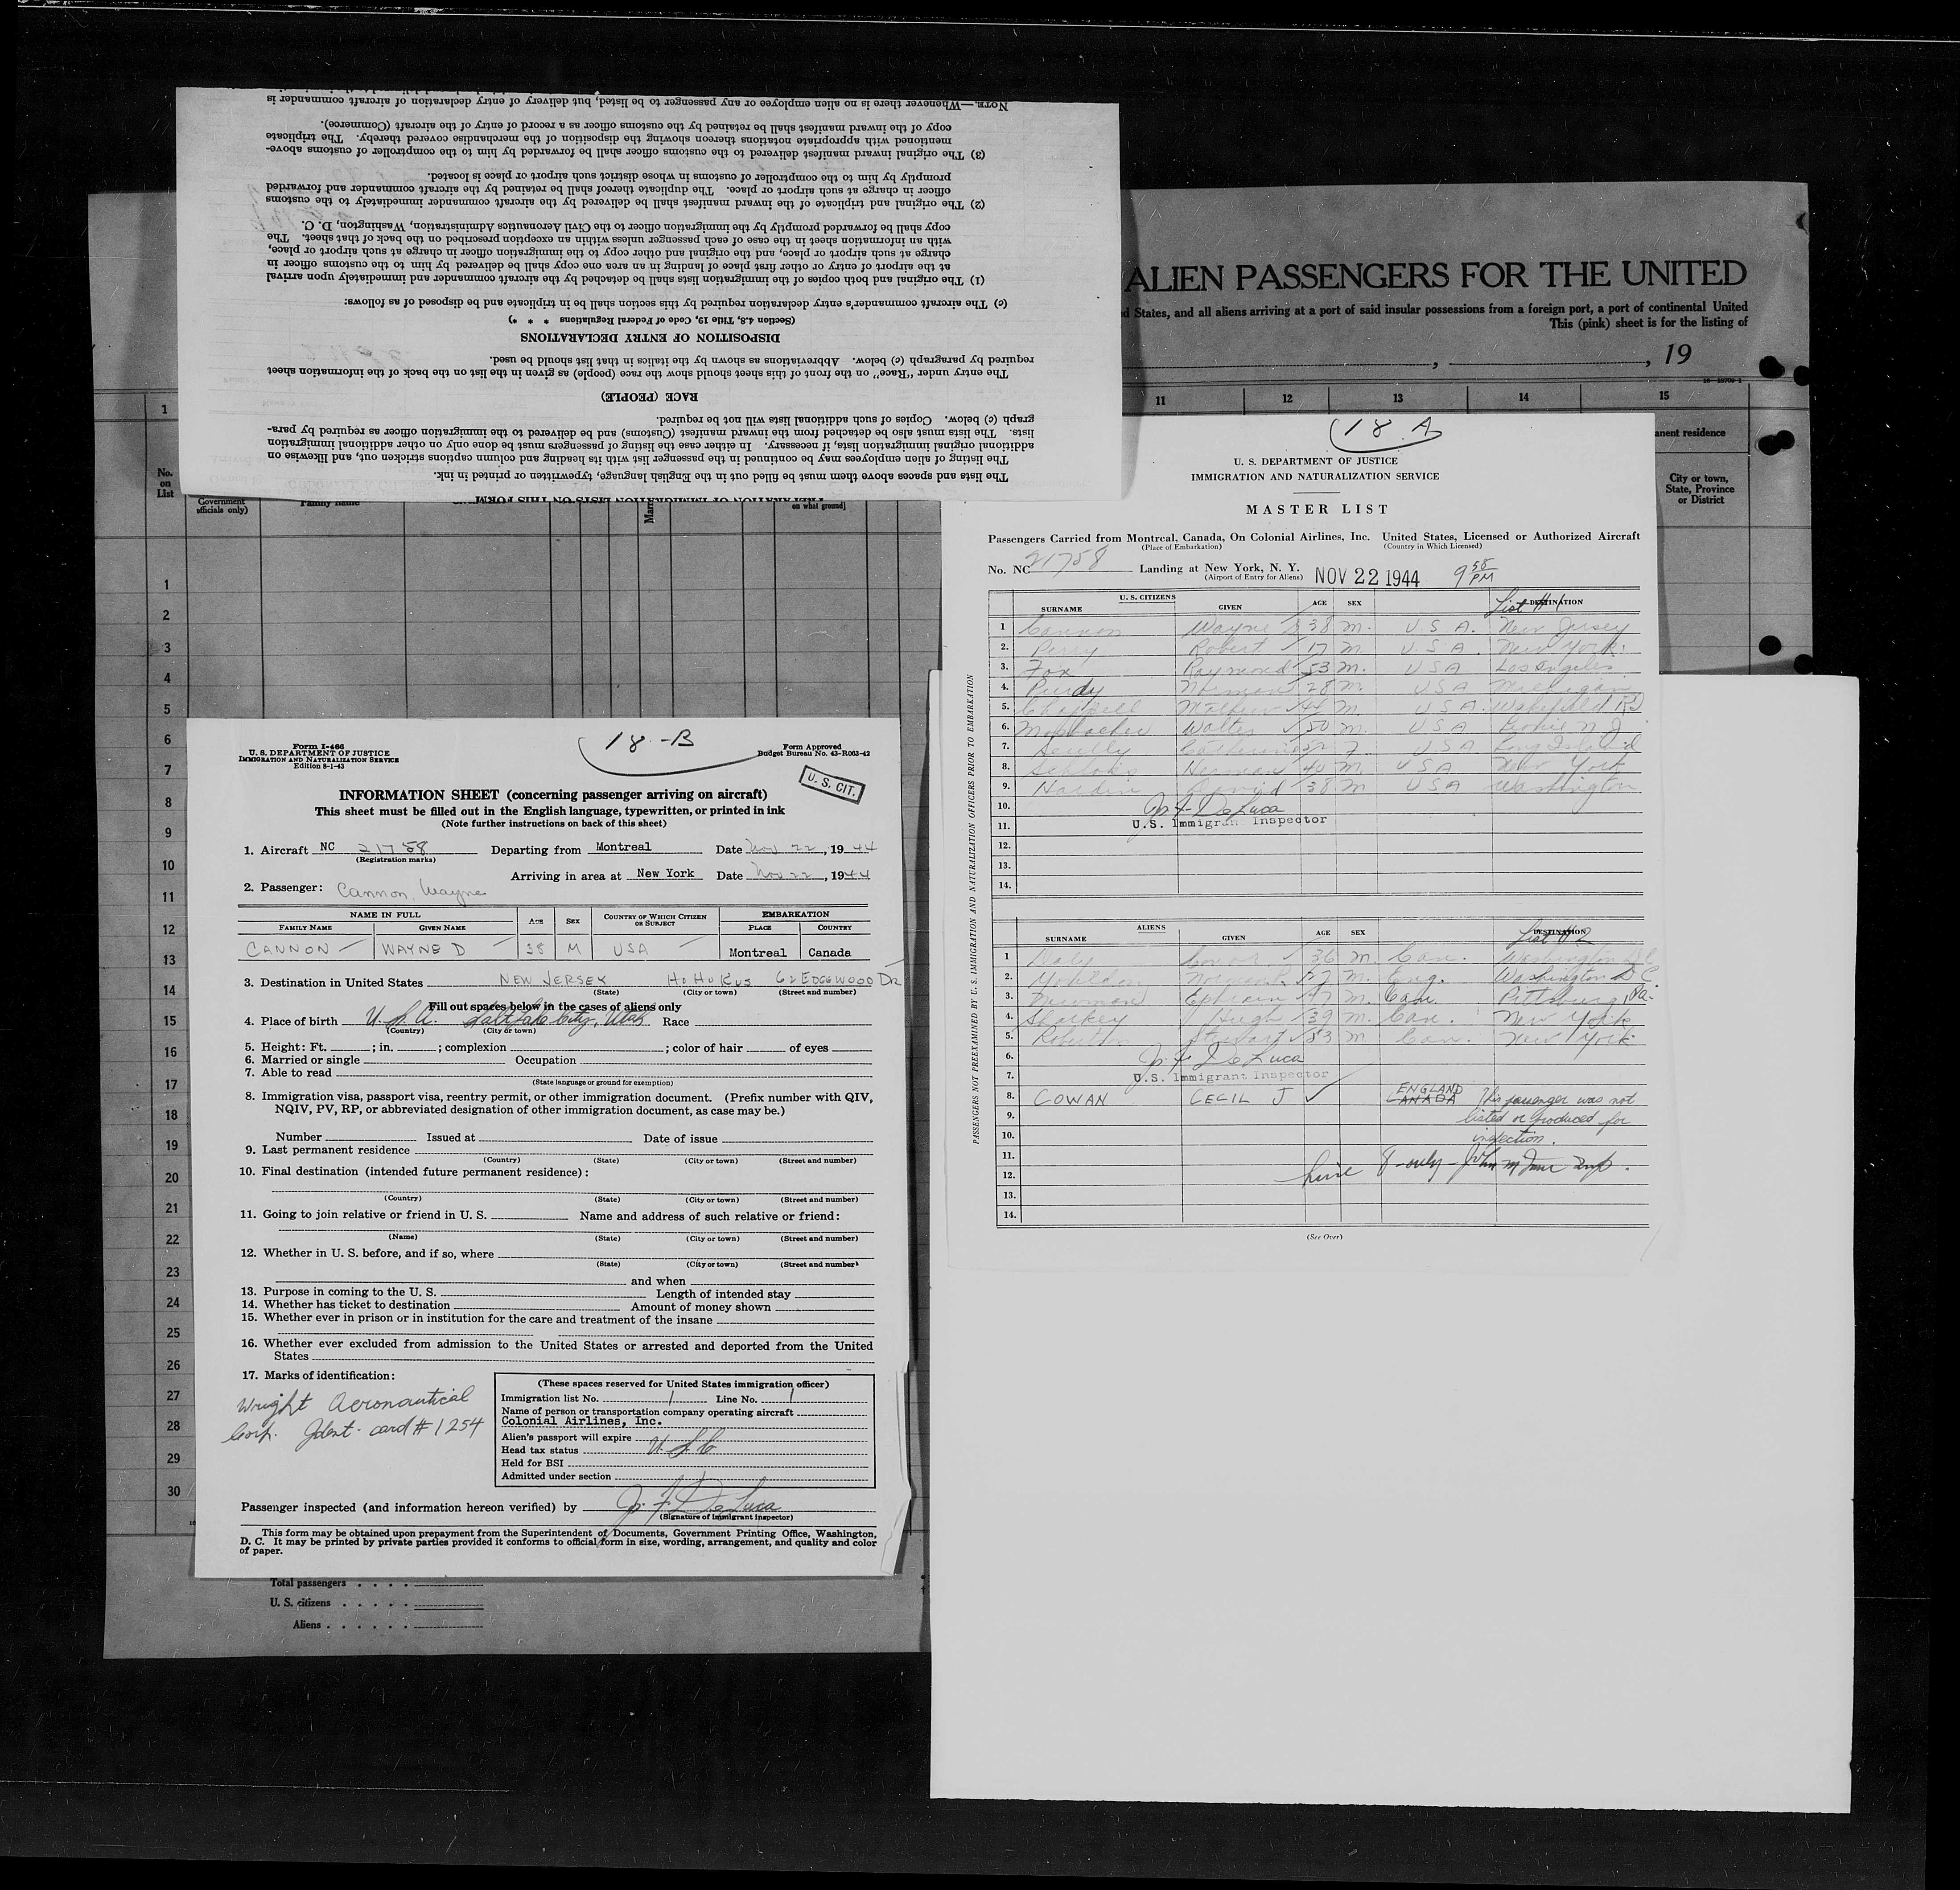 NOTE.—Whenever there is no alien employee or any passenger to be listed, but delivery of entry declaration of aircraft commander is
copy of the inward manifest shall be retained by the customs officer as a record of entry of the aircraft (Commerce).
mentioned with appropriate notations thereon showing the disposition of the merchandise covered thereby. The triplicate
(3) The original inward manifest delivered to the customs officer shall be forwarded by him to the comptroller of customs above-
promptly by him to the comptroller of customs in whose district such airport or place is located.
officer in charge at such airport or place. The duplicate thereof shall be retained by the aircraft commander and forwarded
(2) The original and triplicate of the inward manifest shall be delivered by the aircraft commander immediately to the customs
copy shall be forwarded promptly by the immigration officer to the Civil Aeronautics Administration, Washington, D. C.
with an information sheet in the case of each passenger unless within an exception prescribed on the back of that sheet. The
charge at such airport or place, and the original and other copy to the immigration officer in charge at such airport or place,
at the airport of entry or other first place of landing in an area one copy shall be delivered by him to the customs officer in
(1) The original and both copies of the immigration lists shall be detached by the aircraft commander and immediately upon arrival
(c) The aircraft commander's entry declaration required by this section shall be in triplicate and be disposed of as follows:
(Section 4.8, Title 19, Code of Federal Regulations * * *)
DISPOSITION OF ENTRY DECLARATIONS
required by paragraph (c) below. Abbreviations as shown by the italics in that list should be used.
The entry under "Race" on the front of this sheet should show the race (people) as given in the list on the back of the information sheet
RACE (PEOPLE)
graph (c) below. Copies of such additional lists will not be required.
lists. The lists must also be detached from the inward manifest (Customs) and be delivered to the immigration officer as required by para-
additional original immigration lists, if necessary. In either case the listing of passengers must be done only on other additional immigration
The listing of alien employees may be continued in the passenger list with its heading and column captions stricken out, and likewise on
The lists and spaces above them must be filled out in the English language, typewritten or printed in ink.
PREPARATION OF IMMIGRATION LISTS ON THIS FORM
ALIEN PASSENGERS FOR THE UNITED
d States, and all aliens arriving at a port of said insular possessions from a foreign port, a port of continental United
This (pink) sheet is for the listing of
, , 19
1 11 12 13 14 15
anent residence
No. on List
Government officials only)
Family name
on what ground]
City or town, State, Province or District
1
2
3
4
5
6
7
8
9
10
11
12
13
14
15
16
17
18
19
20
21
22
23
24
25
26
27
28
29
30
Total passengers . . . .
U. S. citizens . . . . .
Aliens . . . . . .
18 -B
Form I-466
U. S. DEPARTMENT OF JUSTICE
IMMIGRATION AND NATURALIZATION SERVICE
Edition 8-1-43
Form Approved
Budget Bureau No. 43-R063-42
U. S. CIT.
INFORMATION SHEET (concerning passenger arriving on aircraft)
This sheet must be filled out in the English language, typewritten, or printed in ink
(Note further instructions on back of this sheet)
1. Aircraft NC 21758 Departing from Montreal Date Nov 22, 1944
(Registration marks)
Arriving in area at New York Date Nov 22, 1944
2. Passenger: Cannon, Wayne
NAME IN FULL AGE SEX COUNTRY OF WHICH CITIZEN OR SUBJECT EMBARKATION
FAMILY NAME GIVEN NAME PLACE COUNTRY
CANNON WAYNE D 38 M USA Montreal Canada
3. Destination in United States NEW JERSEY HOHOKUS 62 EDGEWOOD DR
(State) (City or town) (Street and number)
Fill out spaces below in the cases of aliens only
4. Place of birth U.S.A. Salt Lake City, Utah Race
(Country) (City or town)
5. Height: Ft. ; in. ; complexion ; color of hair of eyes
6. Married or single Occupation
7. Able to read
(State language or ground for exemption)
8. Immigration visa, passport visa, reentry permit, or other immigration document. (Prefix number with QIV,
NQIV, PV, RP, or abbreviated designation of other immigration document, as case may be.)
Number Issued at Date of issue
9. Last permanent residence
(Country) (State) (City or town) (Street and number)
10. Final destination (intended future permanent residence):
(Country) (State) (City or town) (Street and number)
11. Going to join relative or friend in U. S. Name and address of such relative or friend:
(Name) (State) (City or town) (Street and number)
12. Whether in U. S. before, and if so, where
(State) (City or town) (Street and number)
and when
13. Purpose in coming to the U. S. Length of intended stay
14. Whether has ticket to destination Amount of money shown
15. Whether ever in prison or in institution for the care and treatment of the insane
16. Whether ever excluded from admission to the United States or arrested and deported from the United
States
17. Marks of identification:
Wright Aeronautical
Corp. Ident. card # 1254
(These spaces reserved for United States immigration officer)
Immigration list No. 1 Line No. 1
Name of person or transportation company operating aircraft
Colonial Airlines, Inc.
Alien's passport will expire
Head tax status U S C
Held for BSI
Admitted under section
Passenger inspected (and information hereon verified) by J. F. DeLuca
(Signature of immigrant inspector)
This form may be obtained upon prepayment from the Superintendent of Documents, Government Printing Office, Washington,
D. C. It may be printed by private parties provided it conforms to official form in size, wording, arrangement, and quality and color
of paper.
18 A
U. S. DEPARTMENT OF JUSTICE
IMMIGRATION AND NATURALIZATION SERVICE
MASTER LIST
Passengers Carried from Montreal, Canada, On Colonial Airlines, Inc. United States, Licensed or Authorized Aircraft
(Place of Embarkation) (Country in Which Licensed)
No. NC 21758 Landing at New York, N. Y. NOV 22 1944 9 50 PM
(Airport of Entry for Aliens)
PASSENGERS NOT PREEXAMINED BY U. S. IMMIGRATION AND NATURALIZATION OFFICERS PRIOR TO EMBARKATION
U. S. CITIZENS List # 1
SURNAME GIVEN AGE SEX DESTINATION
1 Cannon Wayne D 38 m. U S A. New Jersey
2. Perry Robert 17 m. U.S.A. New York
3. Fox Raymond 53 m. USA Los Angeles
4. Purdy Norman 28 m. USA Michigan
5. Chappell 44 m. USA. Wakefield RI
6. Walter 50 m. USA N J
7. Scully Catherine F. USA Long Island
8. Herman 40 m. USA New York
9. Hardin David 38 m USA Washington
10. J. F. DeLuca
11. U.S. Immigrant Inspector
12.
13.
14.
ALIENS List # 2
SURNAME GIVEN AGE SEX DESTINATION
1 Daly 36 m. Can. Washington D.C.
2. Norman R. 27 m. Eng. Washington D.C.
3. Newman Ephraim 47 m. Can. Pittsburg, Pa.
4. Sharkey Hugh 39 m. Can. New York
5. Stewart 53 m Can. New York
6. J. F. DeLuca
7. U.S. Immigrant Inspector
8. COWAN CECIL J ENGLAND CANADA This passenger was not
9. listed or produced for
10. inspection.
11.
12. Line 8 - only - Insp.
13.
14.
(See Over)